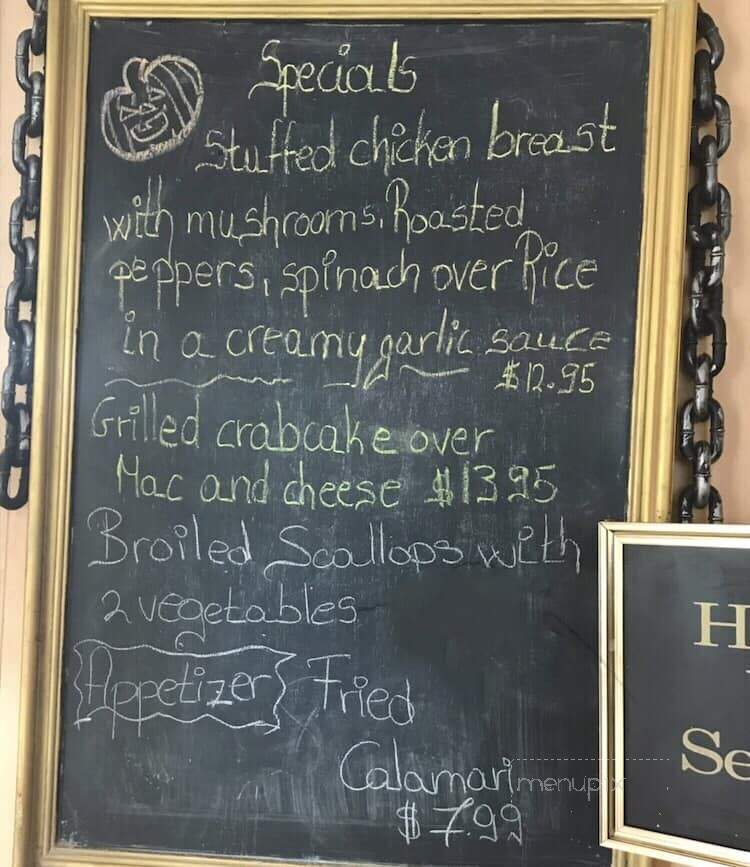 Specials
Stuffed chicken breast
with mushrooms, Roasted
peppers, spinach over Rice
in a creamy garlic sauce
$12.95
Grilled crabcake over
Mac and cheese $13.95
Broiled Scallops with
2 vegetables
Appetizer Fried
Calamari
$7.99
menupix
H
Se